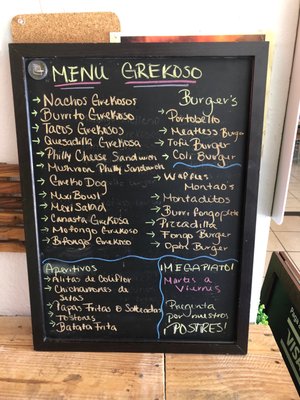 MENU GREKOSO
Nachos Grekosos
Burrito Grekoso
Tacos Grekosos
Quesadilla Grekosa
Philly Cheese Sandwich
Mushroom Philly Sandwich
Greko Dog
Mixi Bowl
Mixi Salad
Canasta Grekosa
Mofongo Grekoso
Bifongo Grekoso
Burger's
Portobello
Meatless Burger
Tofu Burger
Coli Burger
Waffles
Montao's
Montaditos
Burri
Pizzadilla
Fongo Burger
Burger
Aperitivos
Alitas de Coliflor
Chicharrones de
Setas
Papas Fritas o Salteadas
Tostones
Batata Frita
¡MEGAPLATO!
Martes a
Viernes
Pregunta
por nuestros
¡POSTRES!